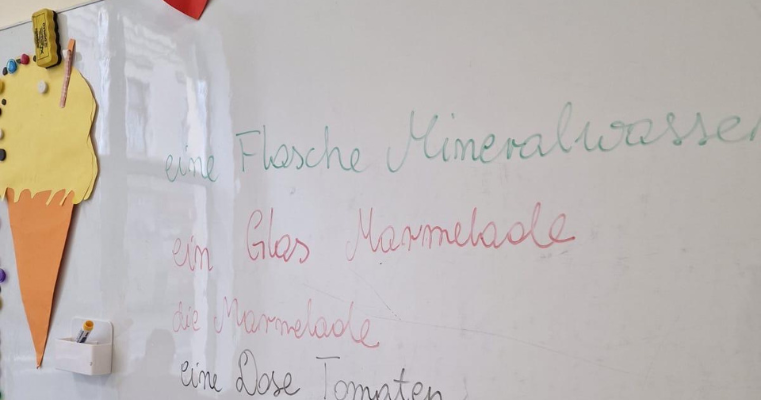 eine Flasche Mineralwasser
ein Glas Marmelade
die Marmelade
eine Dose Tomaten